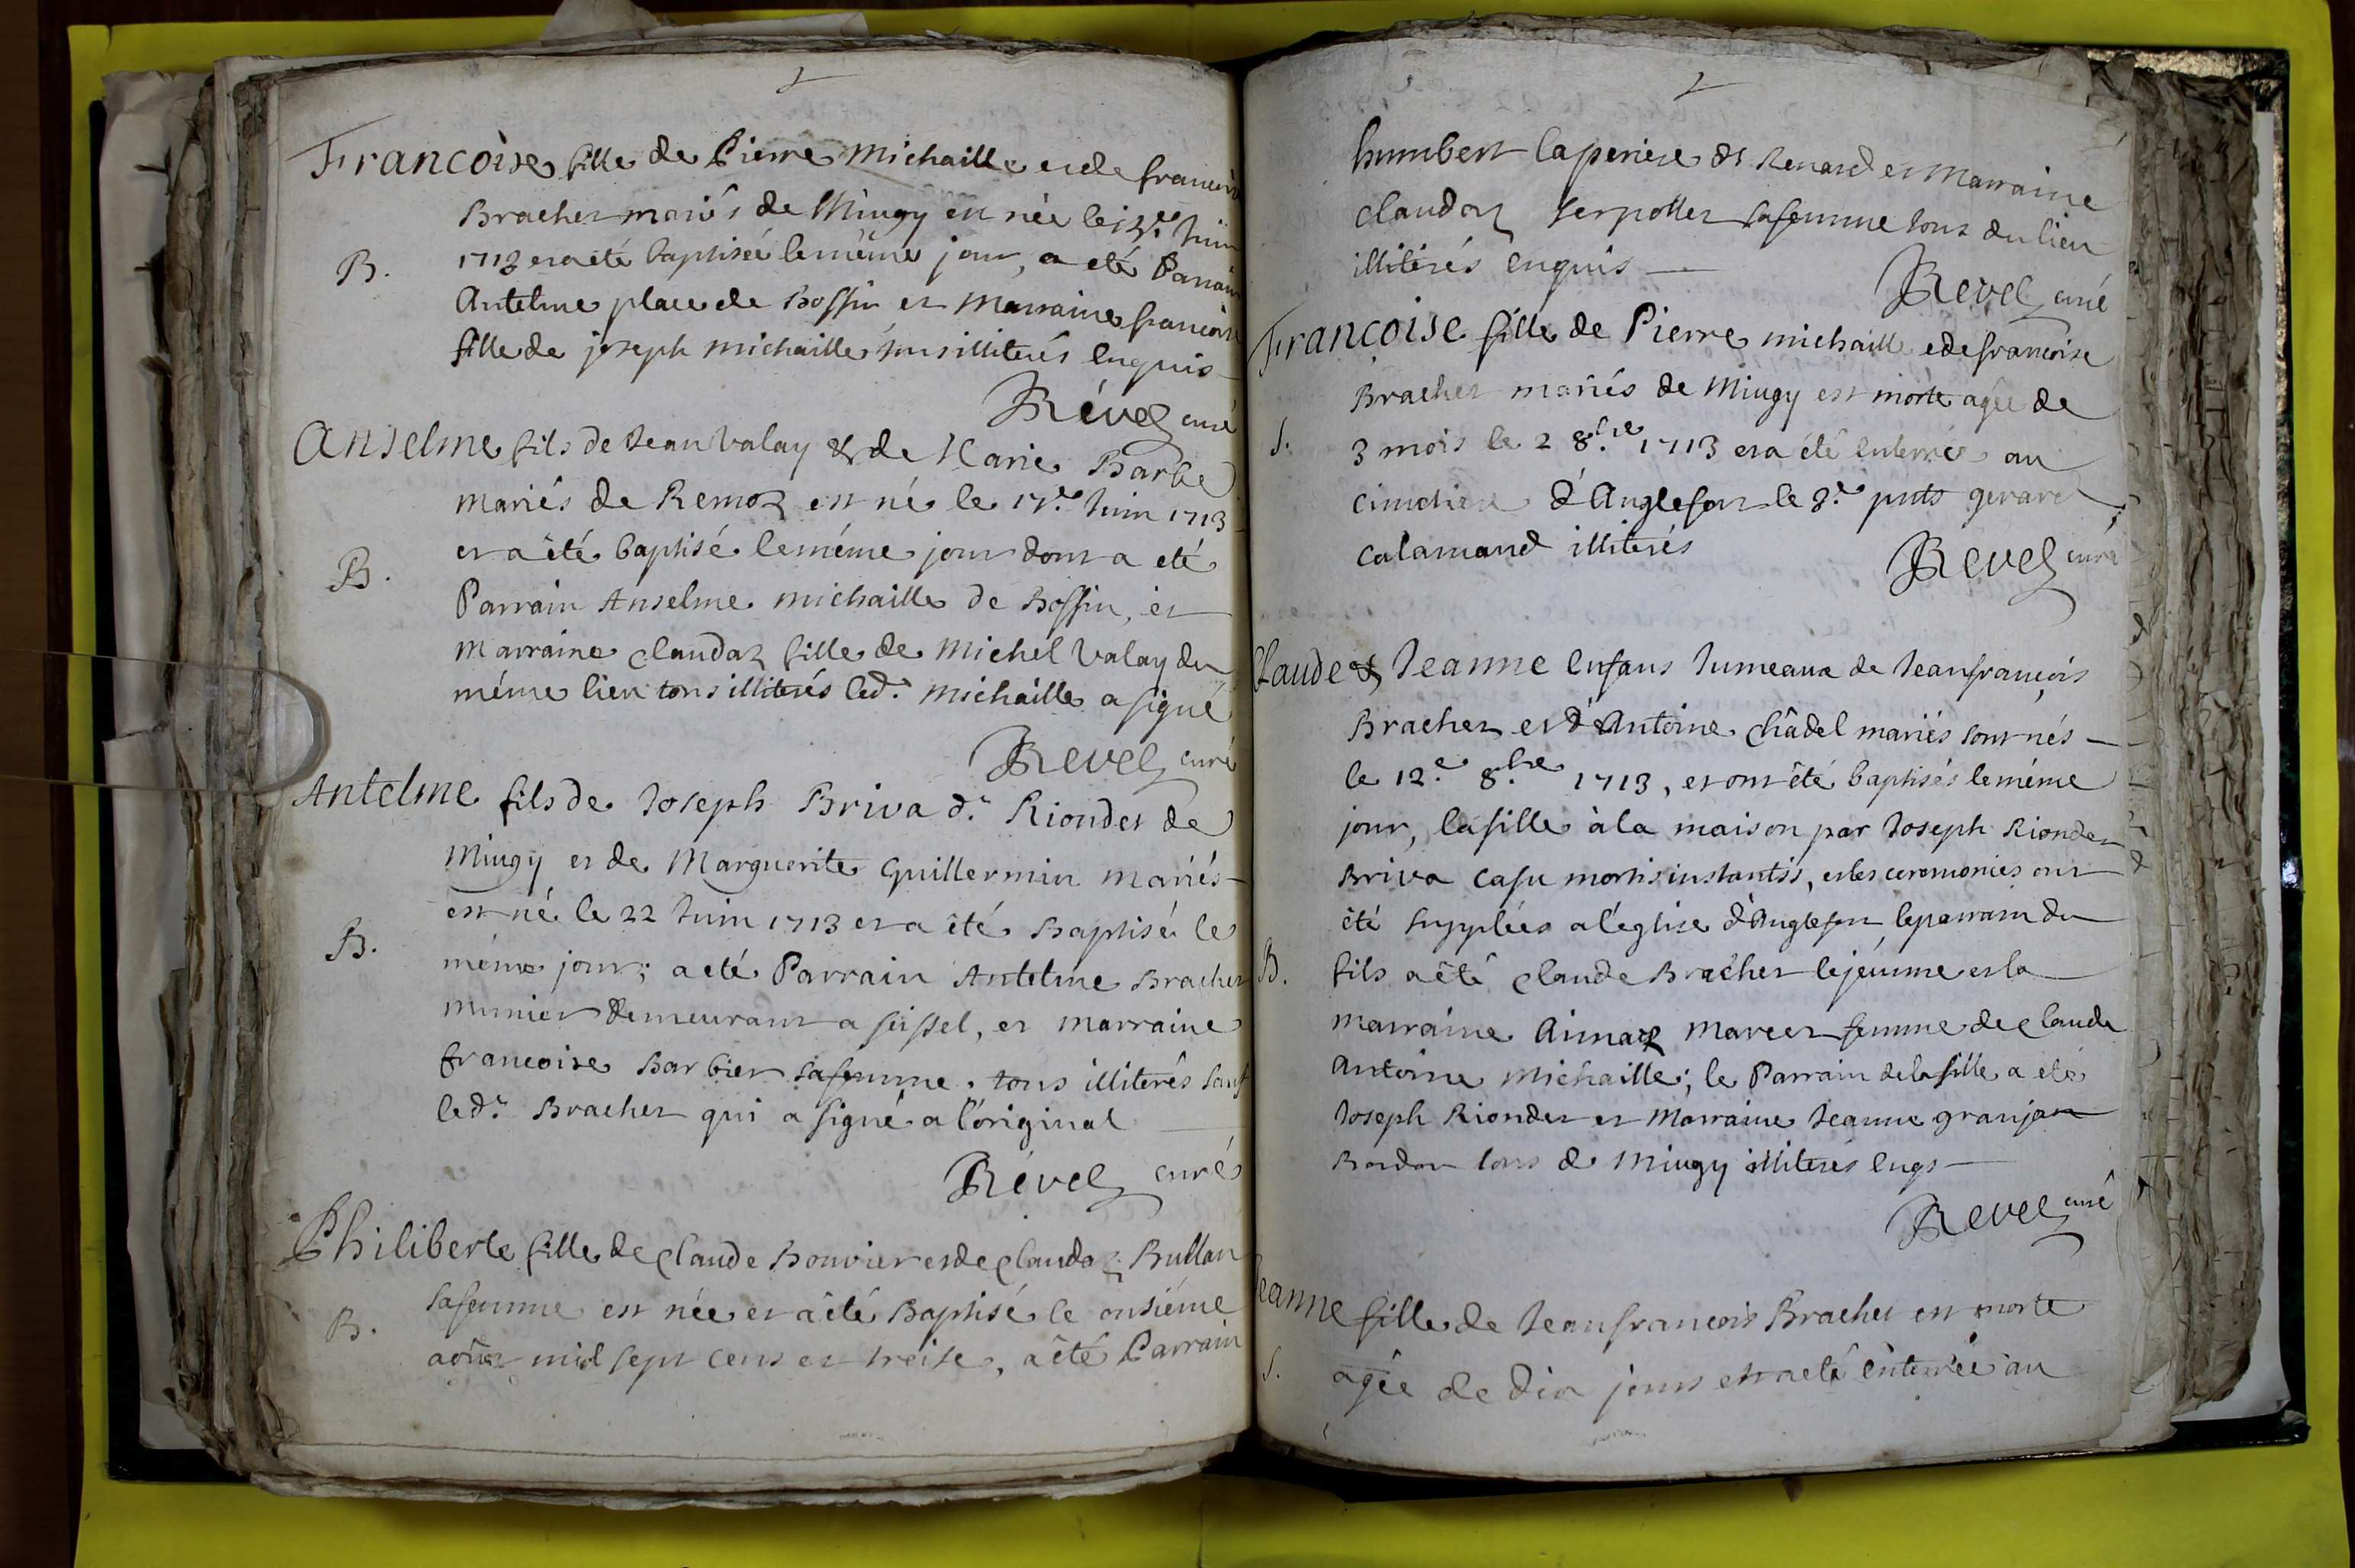 Francoise fille de Pierre Michaille et de francoise
Brachet mariés de Mingy est née le 13.e Juin
1713 et a été baptisée le même jour, a été Parrain
B.
Antelme place de Bossin et Marraine francoise
fille de joseph michaille tous illiterés enquis
Révez curé
Anselme fils de Jean Valay & de Marie Barbe
mariés de Remoz est né le 17.e Juin 1713
et a été baptisé le méme jour dont a eté
B.
Parrain Anselme michaille de Bossin, et
marraine claudaz fille de Michel Valay du
méme lieu tous illiterés led.t michaille a signé
Revel curé
Antelme fils de Joseph Briva d.t Riondet de
Mingy et de Marguerite Guillermin mariés
est né le 22 Juin 1713 et a été Baptisé le
B.
méme jour; a eté Parrain Antelme Brachet
munier demeurant a seissel, et marraine
francoise Barbier sa femme. tous illiterés sauf
led.t Brachet qui a signé a l'original
Révél curé
Philiberte fille de Claude Bouvier et de Claudaz Bullan
sa femme est née et a été Baptisé le onsiéme
B.
aôut mil sept cens et treise, a été Parrain
humbert laperiere dt Renard et Marraine
claudaz serpollet sa femme tous du lieu
illitérés enquis
Revel curé
Francoise fille de Pierre michaille et de francoise
Brachet mariés de Mingy est morte agée de
S.
3 mois le 2 8.bre 1713 et a été enterrée au
cimetiere d'Anglefort le 3.e pnts gerard
calamand illiterés
Revel curé
Claude & Jeanne enfans Jumeaux de Jeanfrançois
Brachet et d'Antoine Châdel mariés sont nés
le 12.e 8.bre 1713, et ont été baptisés le méme
jour, la fille à la maison par Joseph Riondet
Briva casu mortis instantis, et les ceremonies ont
été supplées a l'eglise d'Anglefort, le parrain du
B.
fils a été Claude Brachet le jeunne et la
marraine Aimaz Marcet femme de Claude
Antoine Michaille; le Parrain de la fille a eté
Joseph Riondet et Marraine Jeanne granjan
Bordon tous de Mingy illiteres enqs
Revel curé
Jeanne fille de Jeanfrancois Brachet est morte
S.
agée de dix jours et a eté enterrée au